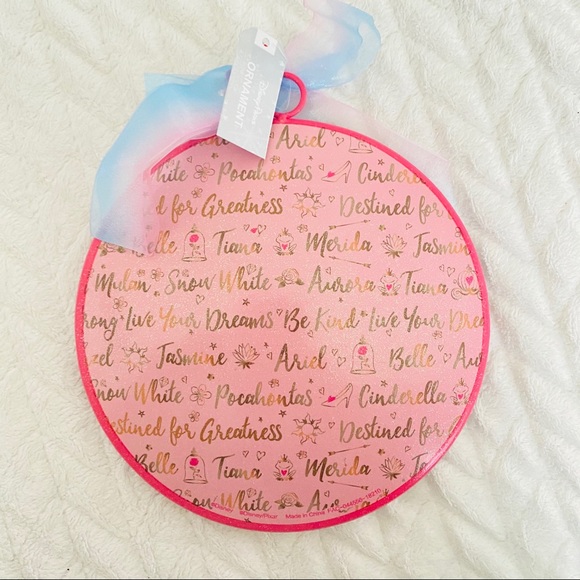 Disney Parks
ORNAMENT
Ariel
hite Pocahontas Cinderella
d for Greatness Destined for
Belle Tiana Merida Jasmin
Mulan Snow White Aurora Tiana
rong Live Your Dreams Be Kind Live Your Drea
zel Jasmine Ariel Belle Au
Snow White Pocahontas Cinderella
estined for Greatness Destined for
Belle Tiana Merida Ja
Snow White A
©Disney ©Disney/Pixar Made in China